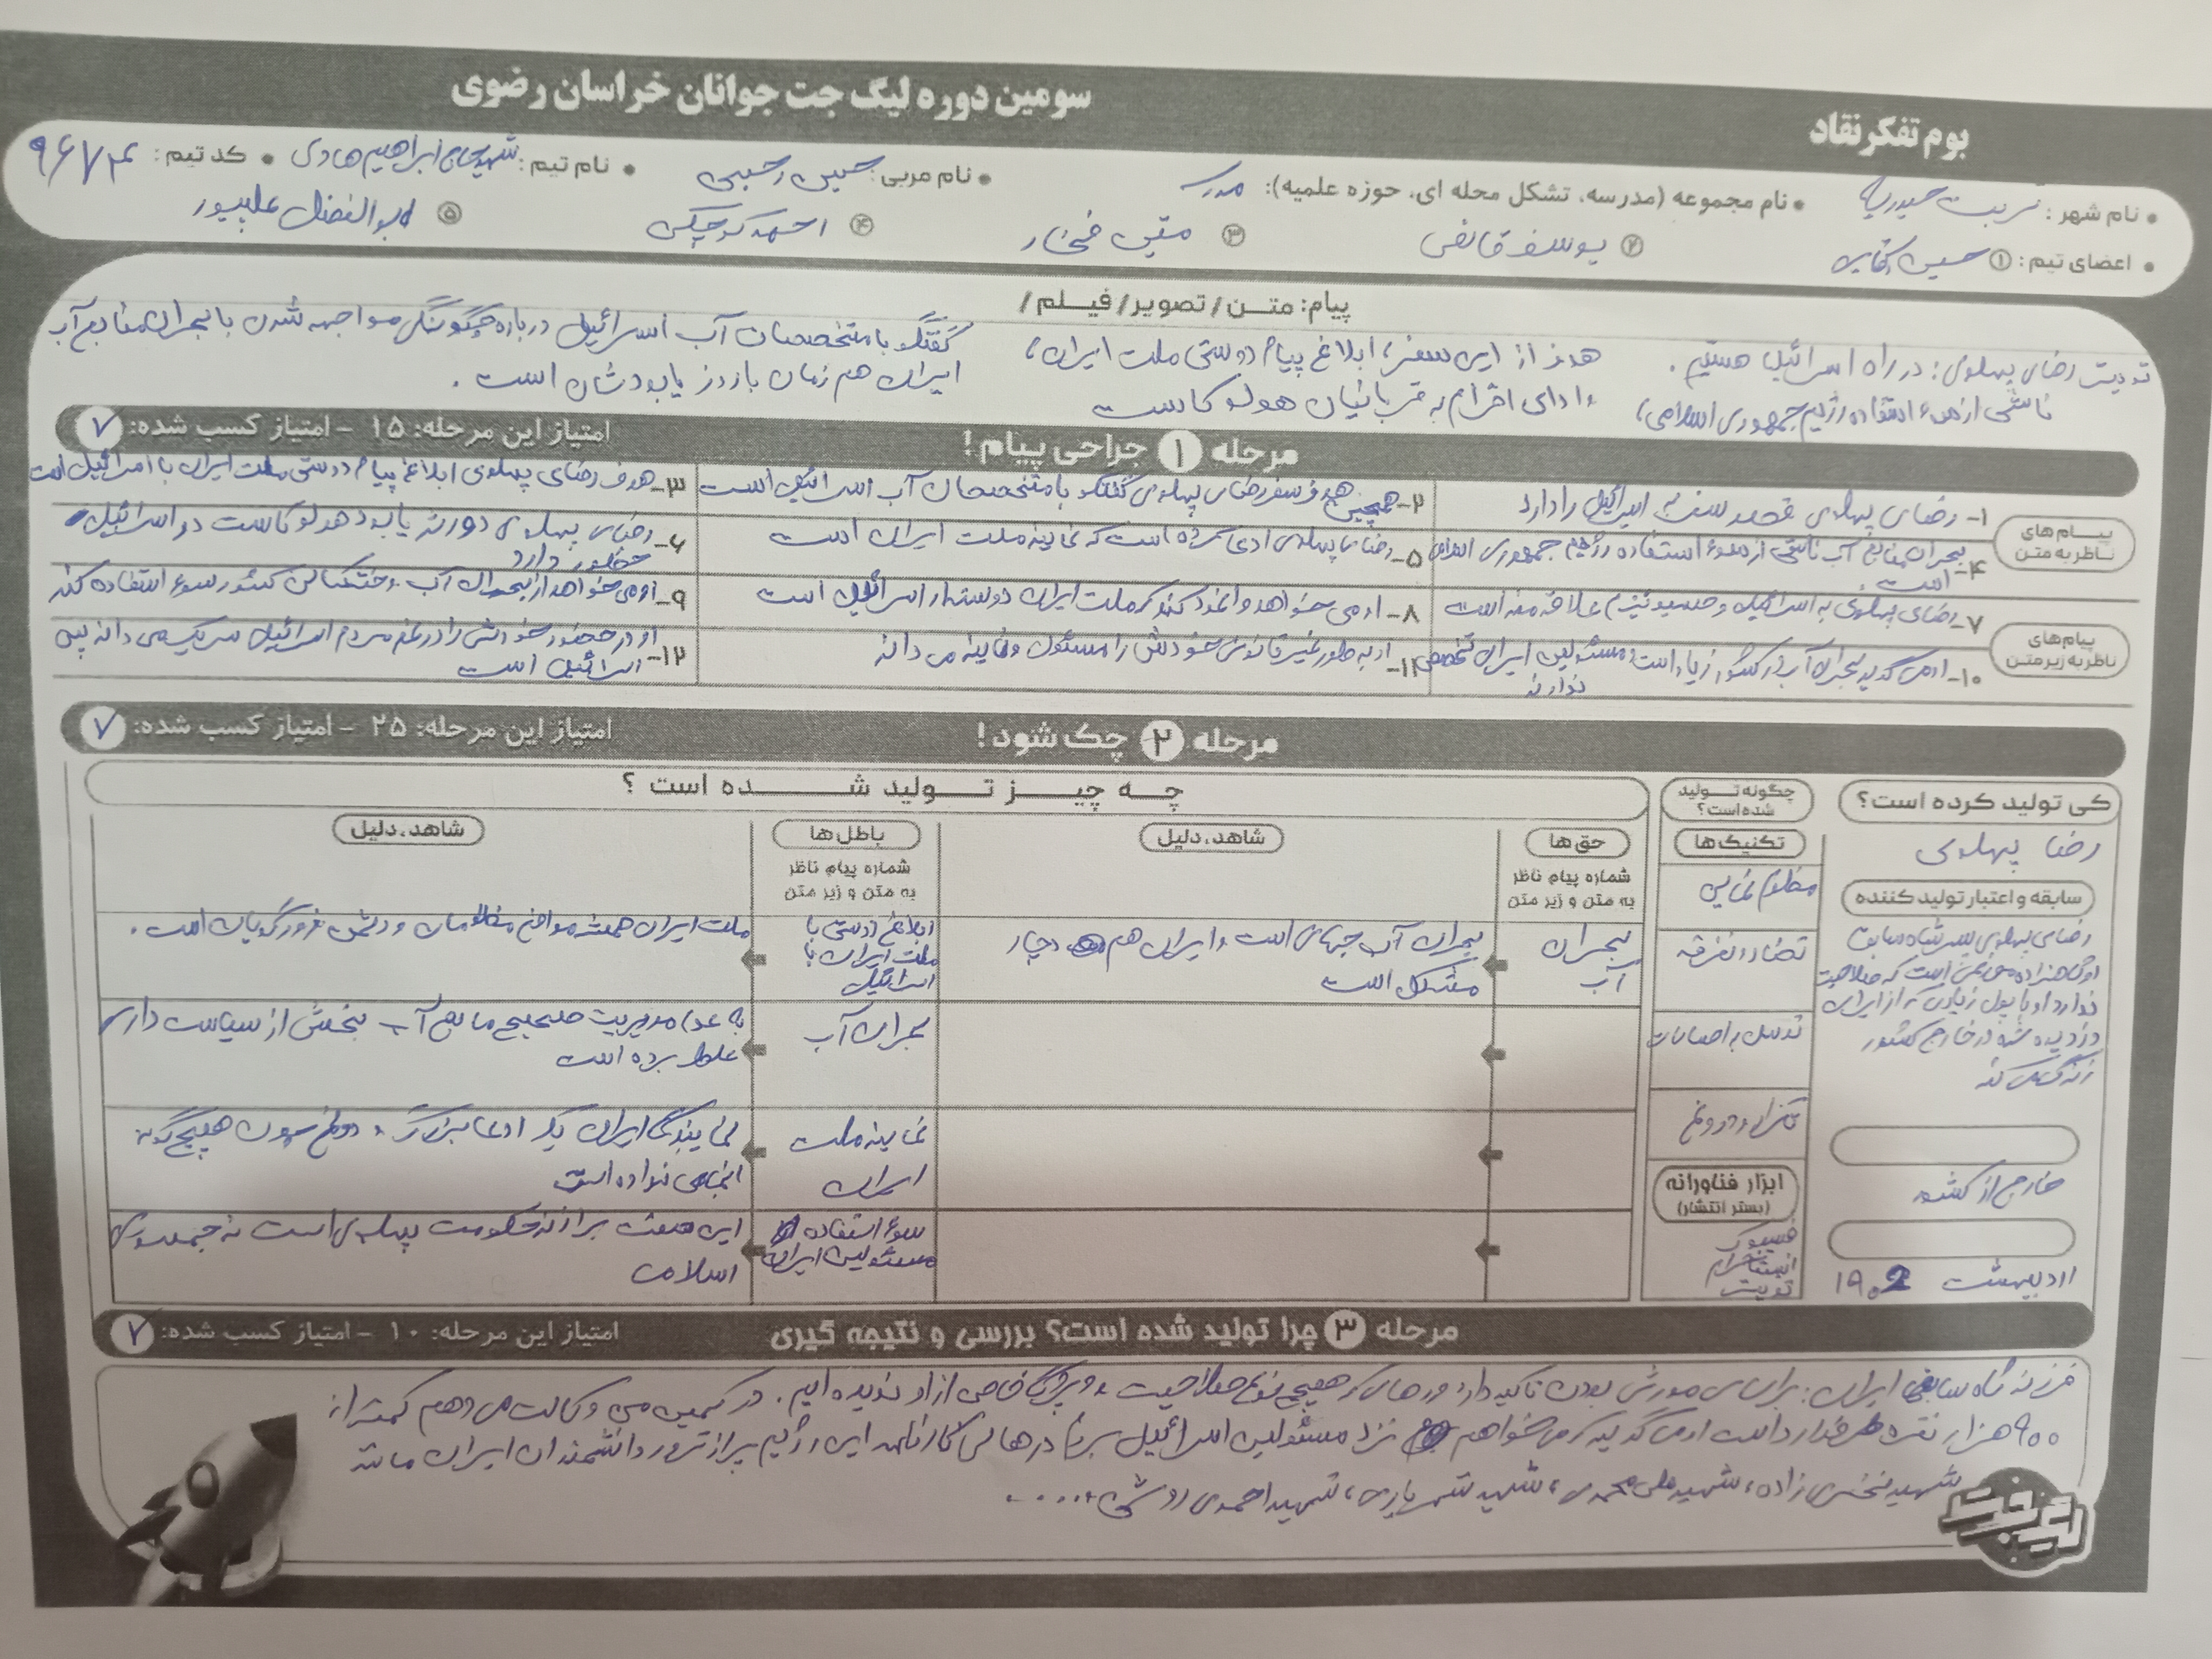 سومین دوره لیگ جت جوانان خراسان رضوی
بوم تفکر نقاد
• نام شهر: تربت حیدریه • نام مجموعه (مدرسه، تشکل محله ای، حوزه علمیه): مدرسه • نام مربی: حسین رحیمی • نام تیم: شهید ابراهیم هادی • کد تیم:
• اعضای تیم: ① حسین ② یوسف قائمی ③ متین فخار ④ احمد کوچکی ⑤ ابوالفضل علیپور
پیام: متن/تصویر/فیلم/
توییت رضای پهلوی: در راه اسرائیل هستیم. هدف از این سفر، ابلاغ پیام دوستی ملت ایران، گفتگو با متخصصان آب اسرائیل درباره چگونگی مواجهه شدن با بحران منابع آب
ناشی از سوء استفاده رژیم جمهوری اسلامی، و ادای احترام به قربانیان هولوکاست ایران هم زمان با روز یابودشان است.
مرحله ۱ جراحی پیام!
امتیاز این مرحله: ۱۵ - امتیاز کسب شده: ۷
پیام های ناظر به متن
۱- رضای پهلوی قصد سفر به اسرائیل را دارد
۲- همچنین هدف سفر رضای پهلوی گفتگو با متخصصان آب اسرائیل است
۳- هدف رضای پهلوی ابلاغ پیام دوستی ملت ایران با اسرائیل است
۴- بحران منابع آب ناشی از سوء استفاده رژیم جمهوری اسلامی است.
۵- رضای پهلوی ادعا کرده است که نماینده ملت ایران است
۶- رضای پهلوی در روز یابود هولوکاست در اسرائیل حضور دارد
پیام های ناظر به زیر متن
۷- رضای پهلوی به اسرائیل و صهیونیزم علاقه مند است
۸- او می خواهد وانمود کند که ملت ایران دوستدار اسرائیل است
۹- او می خواهد از بحران آب و خشکسالی کشور سوء استفاده کند
۱۰- او می گوید بحران آب در کشور زیاد است و مسئولین ایران تخصص ندارند
۱۱- او به طور غیر قانونی خودش را مسئول و نماینده می داند
۱۲- او در حضور خودش را در غم مردم اسرائیل شریک می داند پس اسرائیل است
مرحله ۲ چک شود!
امتیاز این مرحله: ۲۵ - امتیاز کسب شده: ۷
کی تولید کرده است؟
رضا پهلوی
سابقه و اعتبار تولید کننده
رضای پهلوی پسر شاه سابق
است که صلاحیت
ندارد او با پول زیادی که از ایران
دزدیده شده در خارج کشور
زندگی می کند
خارج از کشور
اردیبهشت ۱۴۰۲
چگونه تولید شده است؟
تکنیک ها
مظلوم نمایی
تضاد و تفرقه
توسل به احساسات
تکرار و دروغ
ابزار فناورانه
(بستر انتشار)
فیسبوک
اینستاگرام
توییتر
چه چیز تولید شده است؟
حق ها
شماره پیام ناظر
به متن و زیر متن
شاهد، دلیل
بحران آب
بحران آب جهانی است و ایران هم دچار
مشکل است
باطل ها
شماره پیام ناظر
به متن و زیر متن
شاهد، دلیل
ابلاغ دوستی با
ملت ایران با
اسرائیل
ملت ایران همیشه موافق مظلومان و دشمن زورگویان است.
بحران آب
به عدم مدیریت صحیح منابع آب بخش از سیاست داری
غلط برده است
نماینده ملت
ایران
نمایندگی ایران یک ادعا بزرگ و دروغ چون هیچ گونه
انجامی نداده است
سوء استفاده
مسئولین ایران
این صفت برازنده حکومت پهلوی است نه جمهوری
اسلامی
مرحله ۳ چرا تولید شده است؟ بررسی و نتیجه گیری
امتیاز این مرحله: ۱۰ - امتیاز کسب شده: ۷
فرزند شاه سابق ایران: براساس موروثی بودن تاکید دارد در حالی که هیچ نوع صلاحیت و ویژگی خاصی از او ندیده ایم. در کمپین من وکالت می دهم کمتر از
۹۰۰ هزار نفر طرفدار داشت او می گوید که می خواهم نزد مسئولین اسرائیل بروم در حالی کارنامه این رژیم پر از ترور دانشمندان ایران مانند
شهید فخری زاده، شهید علی محمدی، شهید شهریاری، شهید احمدی روشن و.....
لیگ جت